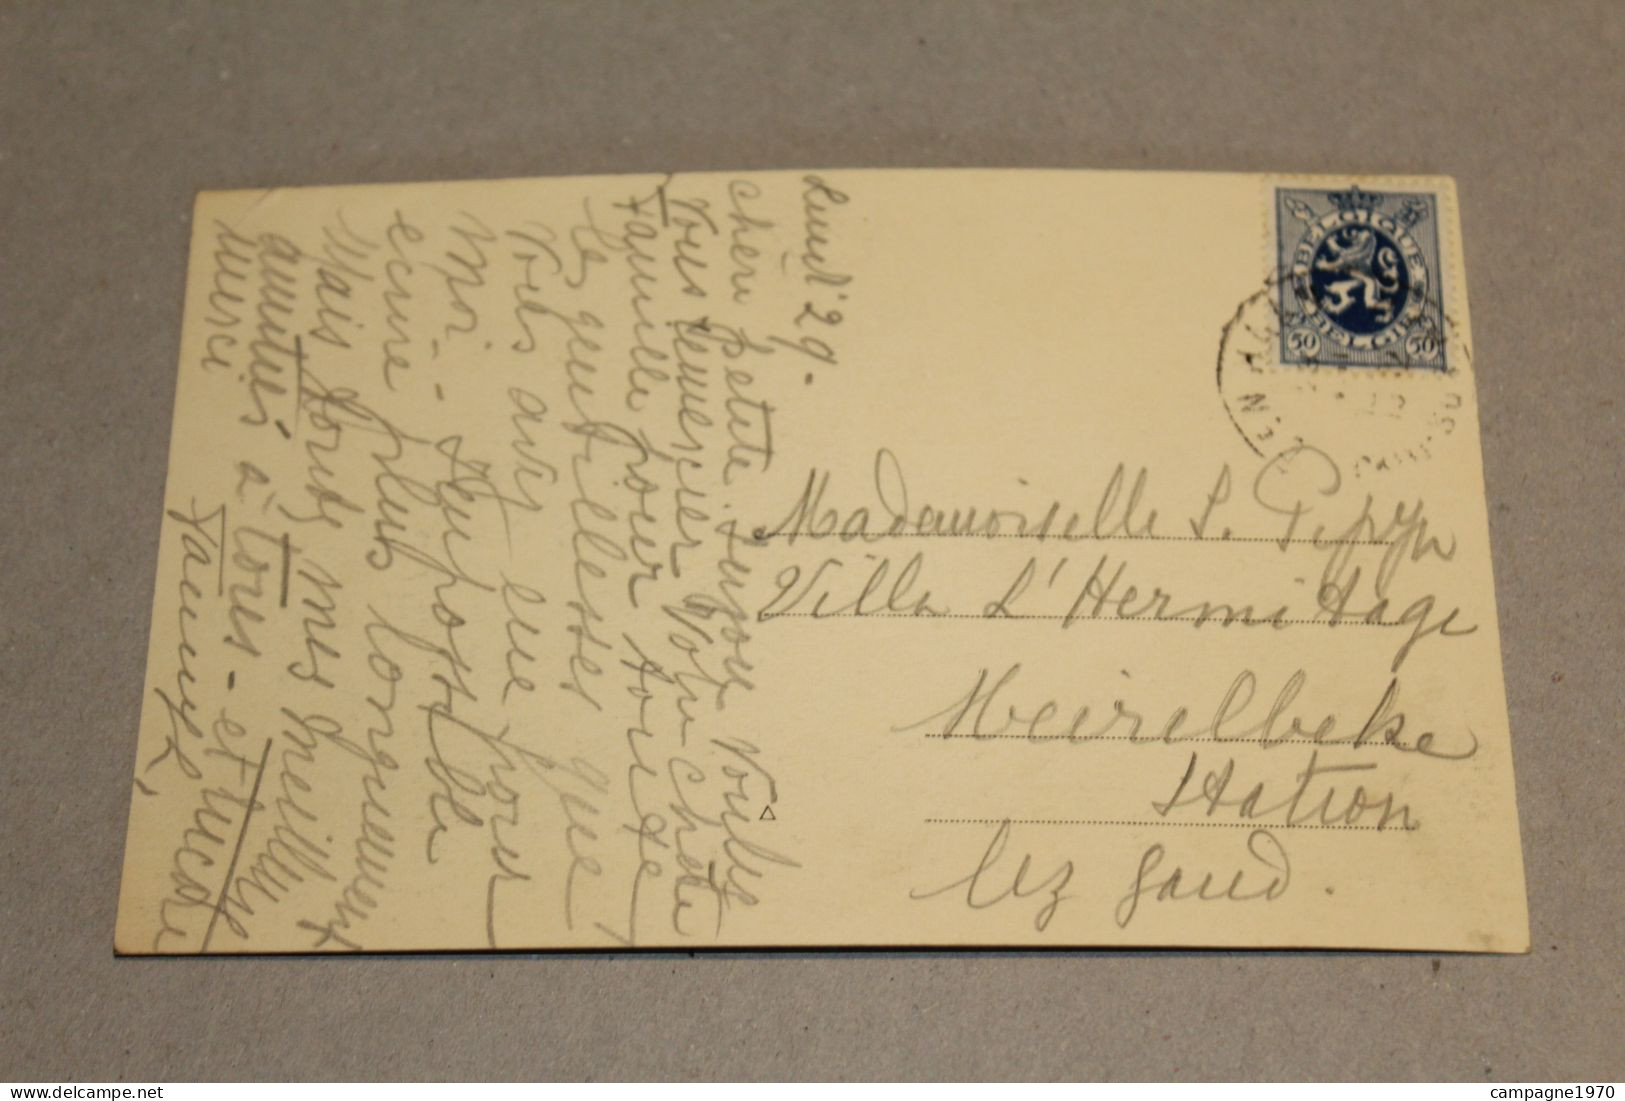 Lundi 29.
chère petite Vous
Vous remercier Votre chère
Famille pour toute
les gentillesses que
Vous avez eue pour
moi - Impossible
ecrire plus longuement
Mais toutes mes meilleures
amitiés à tous - et
merci
BELGIQUE
BELGIE
50 50
Mademoiselle S. Pepyn
Villa L'Hermitage
Meirelbeke
Station
lez Gand.
delcampe.net
campagne1970